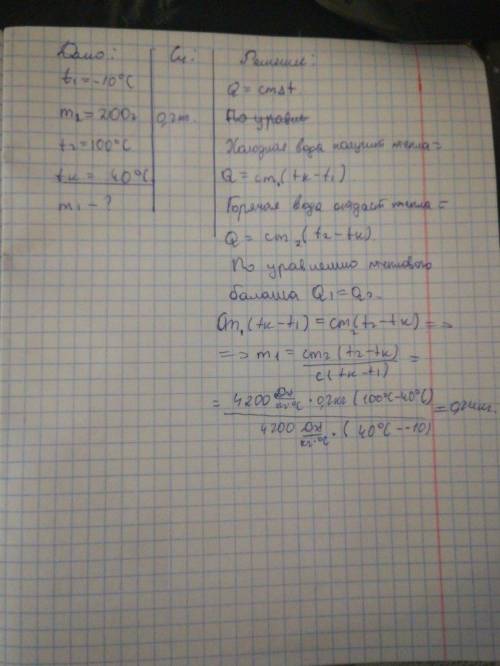 Дано:
t₁=-10°C
m₂=200г
t₂=100°C
tк = 40°C
m₁ - ?
Си:
0,2кг.
Решение:
Q = cmΔt
По уравне
Холодная вода получит тепла =
Q = cm₁(tк-t₁)
Горячая вода отдаст тепла =
Q = cm₂(t₂-tк)
По уравнению теплового
баланса Q₁=Q₂
Cm₁(tк-t₁) = cm₂(t₂-tк) =>
=> m₁ = cm₂(t₂-tк) / c(tк-t₁) =
= 4200 Дж/кг·°C · 0,2кг (100°C-40°C) / 4200 Дж/кг·°C · (40°C--10) = 0,24кг.